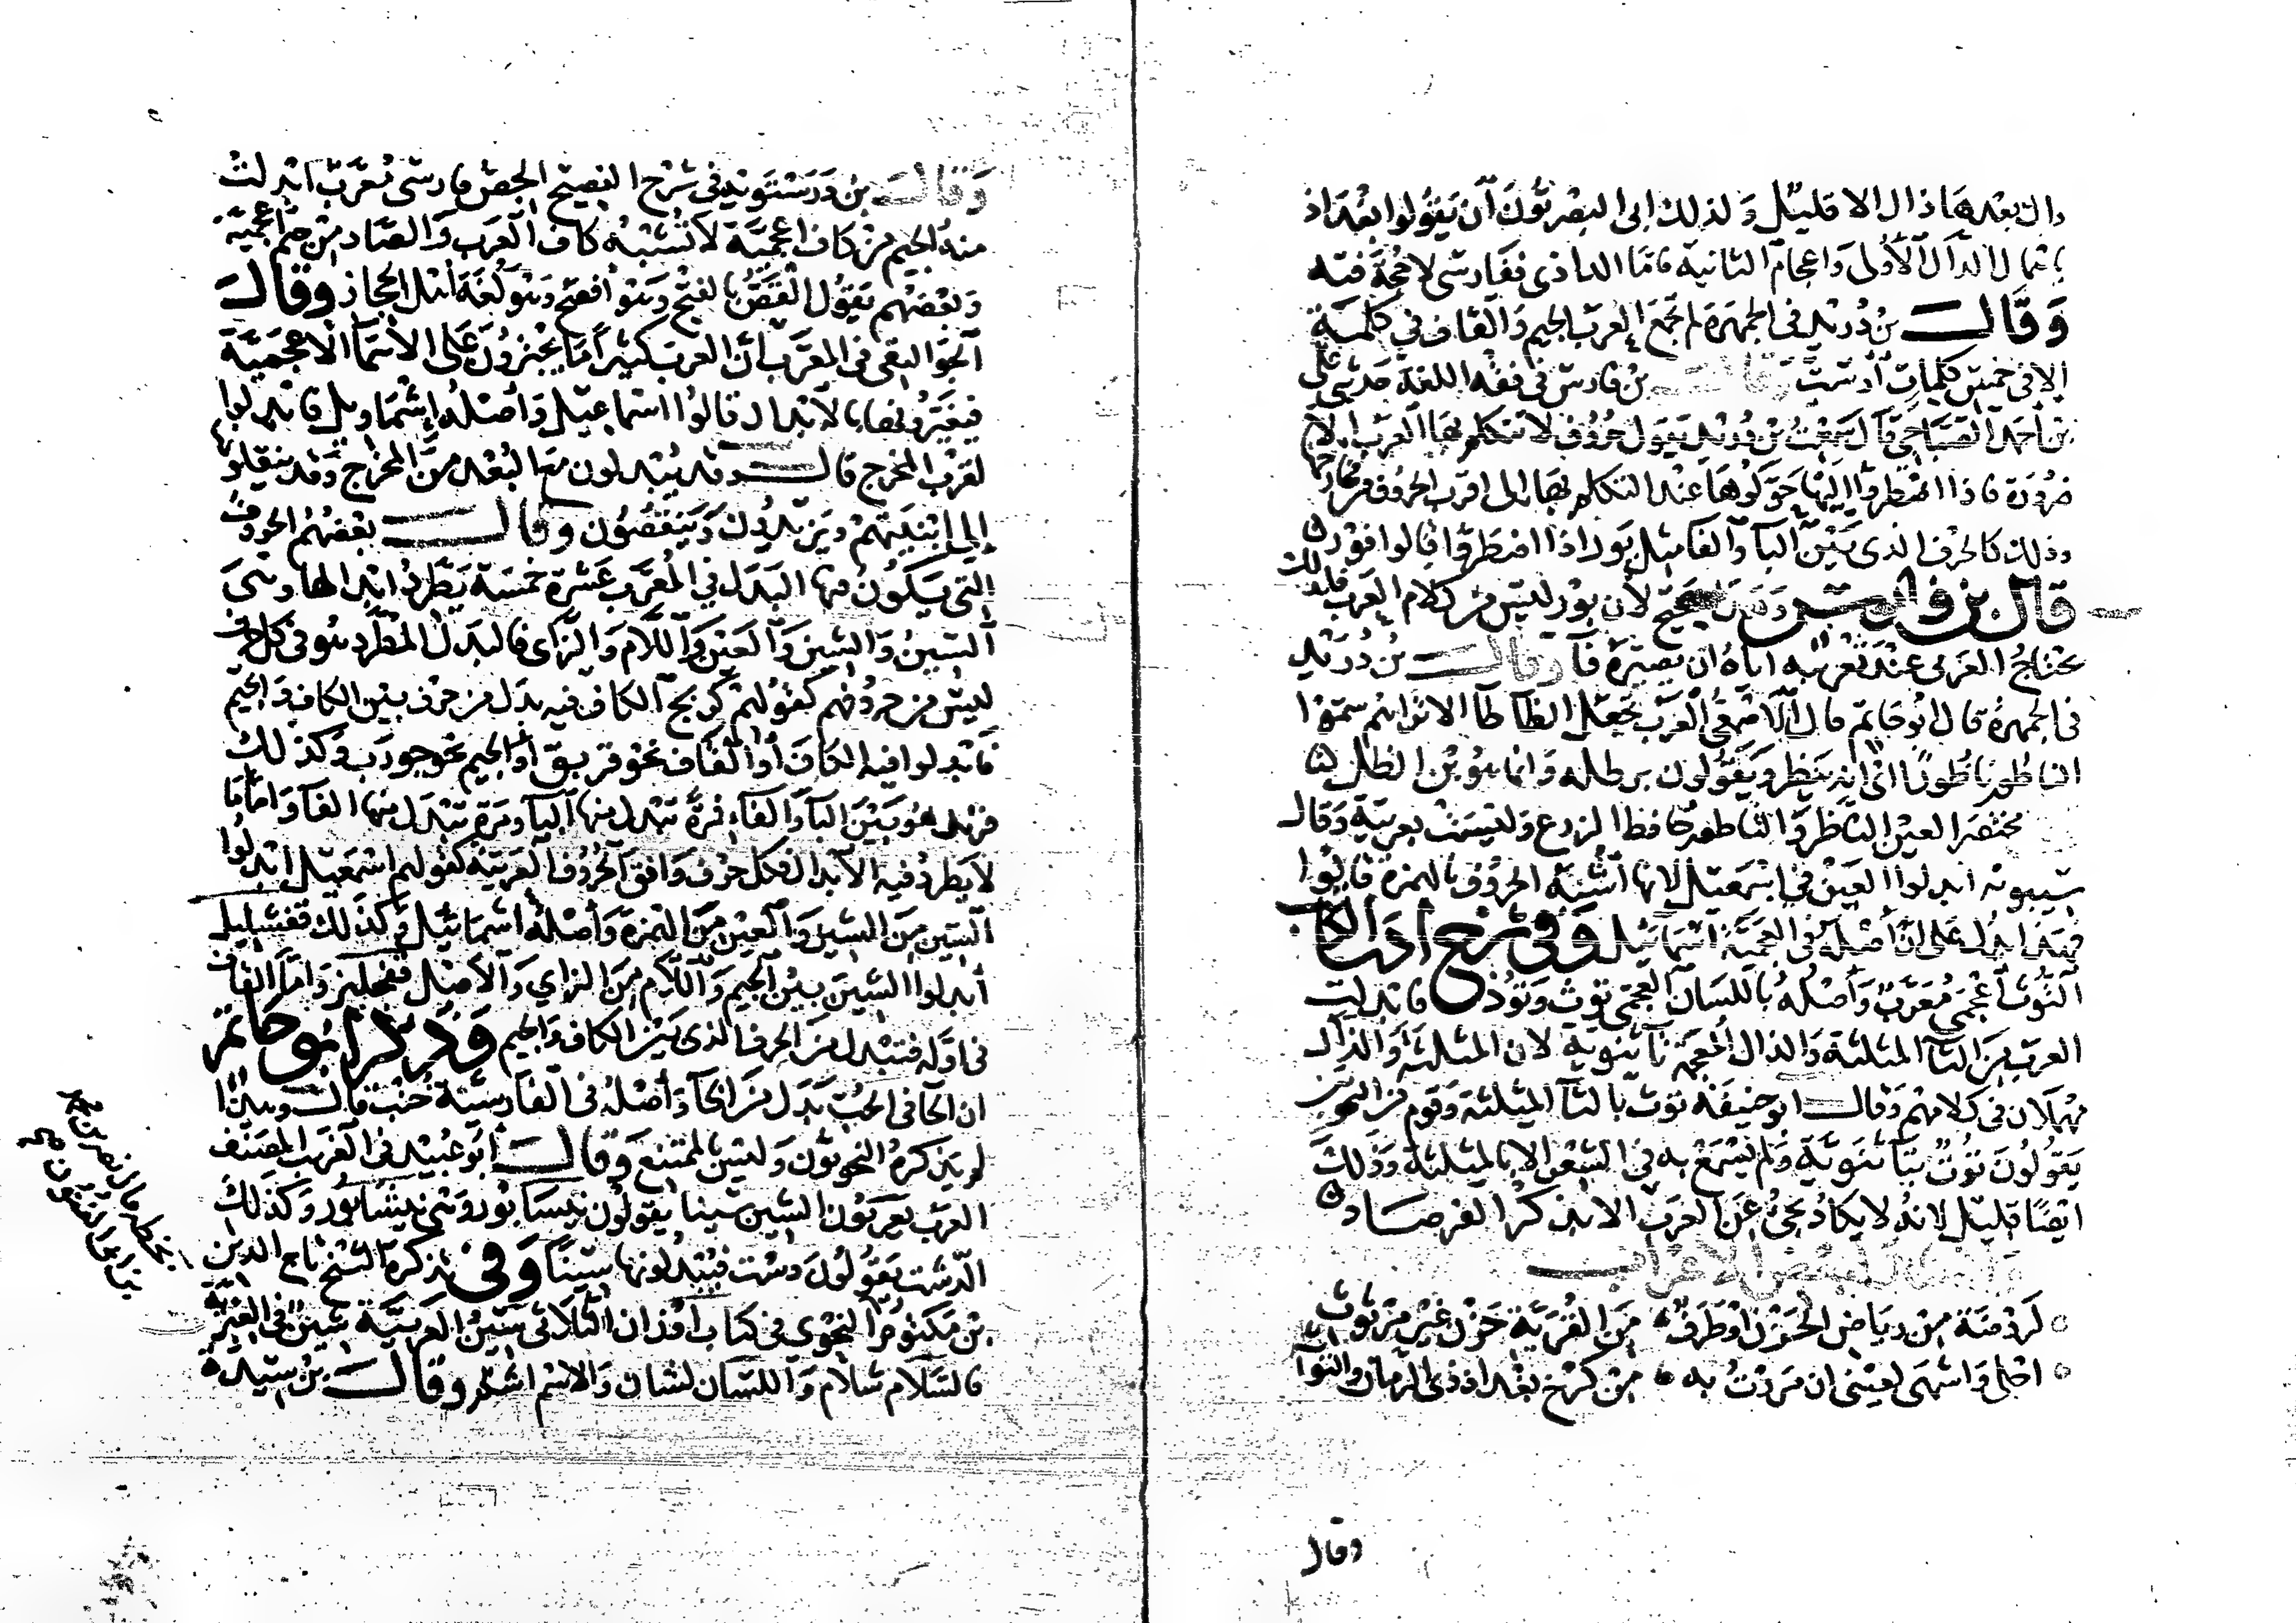 دال بعدها ذال الا قليل ولذلك ابى البصريون أن يقولوا بغداذ
باهمال الدال الأولى واعجام الثانية فاما الداذى ففارسى لا حجة فيه
وقال بن دريد فى الجمهرة لم تجمع العرب الجيم والقاف في كلمة
الا فى خمس كلمات أو ست وقال بن فارس فى فقه اللغة حدثنى على
بن أحمد الصباحى قال سمعت بن دريد يقول حروف لا تتكلم بها العرب الا
ضرورة فاذا اضطروا اليها حولوها عند التكلم بها الى اقرب الحروف من مخارجها
وذلك كالحرف الذى بين البا والفا مثل بور اذا اضطروا قالوا فور
قال بن فارس وهذا صحيح لان بور ليس من كلام العرب فلذلك
يحتاج العربى عند تعريبه اياه ان يصيره فا وقال بن دريد
فى الجمهرة قال ابو حاتم قال الاصمعى العرب تجعل الظا طا الا تراهم سموا
الناظور ناطورا اى انه ينظر ويقولون برطله وانما هو بن الظل
مختصر العين الناظر والناطور حافظ الزرع وليست بعربية وقال
سيبويه ابدلوا العين في اسمعيل لانها اشبه الحروف بالهمزة قالوا
فهذا يدل على ان أصله فى العجمية اسمائيل وفى شرح ادب الكاتب
التوث أعجمى معرب وأصله باللسان العجمى توث وتوذ فابدلت
العرب من الثا المثلثة والذال المعجمة تا ثنوية لان المثلثة والذال
مهملان فى كلامهم وقال ابو حنيفة توث بالثا المثلثة وقوم من النحويين
يقولون توت بتا ثنوية ولم يسمع به فى الشعر الا بالمثلثة وذلك
ايضا قليل لانه لا يكاد يجئ عن العرب الا بذكر الفرصاد
وانشد لبعض الاعراب
لروضة من رياض الحزن او طرف من القرية حزن غير محروث
احلى واشهى لعينى ان مررت به من كرخ بغداد ذى الرمان والتوث
وقال
وقال بن درستويه فى شرح الفصيح الجص فارسى معرب ابدلت
منه الجيم من كاف اعجمية لا تشبه كاف العرب والصاد من جيم اعجمية
وبعضهم يقول القص بالفتح وهو أفصح وهو لغة اهل الحجاز وقال
الجواليقى فى المعرب ان العرب كثيرا ما يجترؤن على الأسما الاعجمية
فيغيرونها بالابدال قالوا اسماعيل وأصله اشماويل فابدلوا
لقرب المخرج قال وقد يبدلون مع البعد من المخرج وقد ينقلونها
إلى ابنيتهم ويزيدون وينقصون وقال بعضهم الحروف
التى يكون فيها البدل في المعرب عشرة خمسة يطرد ابدالها وهى
السين والشين والعين واللام والزاى فالبدل المطرد هو فى كل حرف
ليس من حروفهم كقولهم كربج الكاف فيه بدل من حرف بين الكاف والجيم
فابدلوا فيه الكاف أو القاف نحو قربق أو الجيم نحو جورب وكذلك
فرند هو بين البا والفاء فمرة تبدل منها البا ومرة تبدل منها الفا واما ما
لا يطرد فيه الابدال فكل حرف وافق الحروف العربية كقولهم اسمعيل ابدلوا
السين من الشين والعين من الهمزة وأصله اشمائيل وكذلك قفشليل
أبدلوا الشين من الجيم واللام من الزاي والاصل قفجليز واما القاف
فى اوله فتبدل من الحرف الذى بين الكاف والجيم وذكر ابو حاتم
ان الحا فى الحب بدل من الخا وأصله فى الفارسية خنب قال وهذا
لم يذكره النحويون وليس بالممتنع وقال ابو عبيد فى الغريب المصنف
العرب يعربون الشين سينا يقولون نيسابور وهى نيشابور وكذلك
الدشت يقولون دست فيبدلونها سينا وفى تذكرة الشيخ تاج الدين
بن مكتوم النحوى فى كتاب اوزان الثلاثى سين العربية شين فى العبرية
فالسلام شلام واللسان لشان والاسم اشم وقال بن سيده